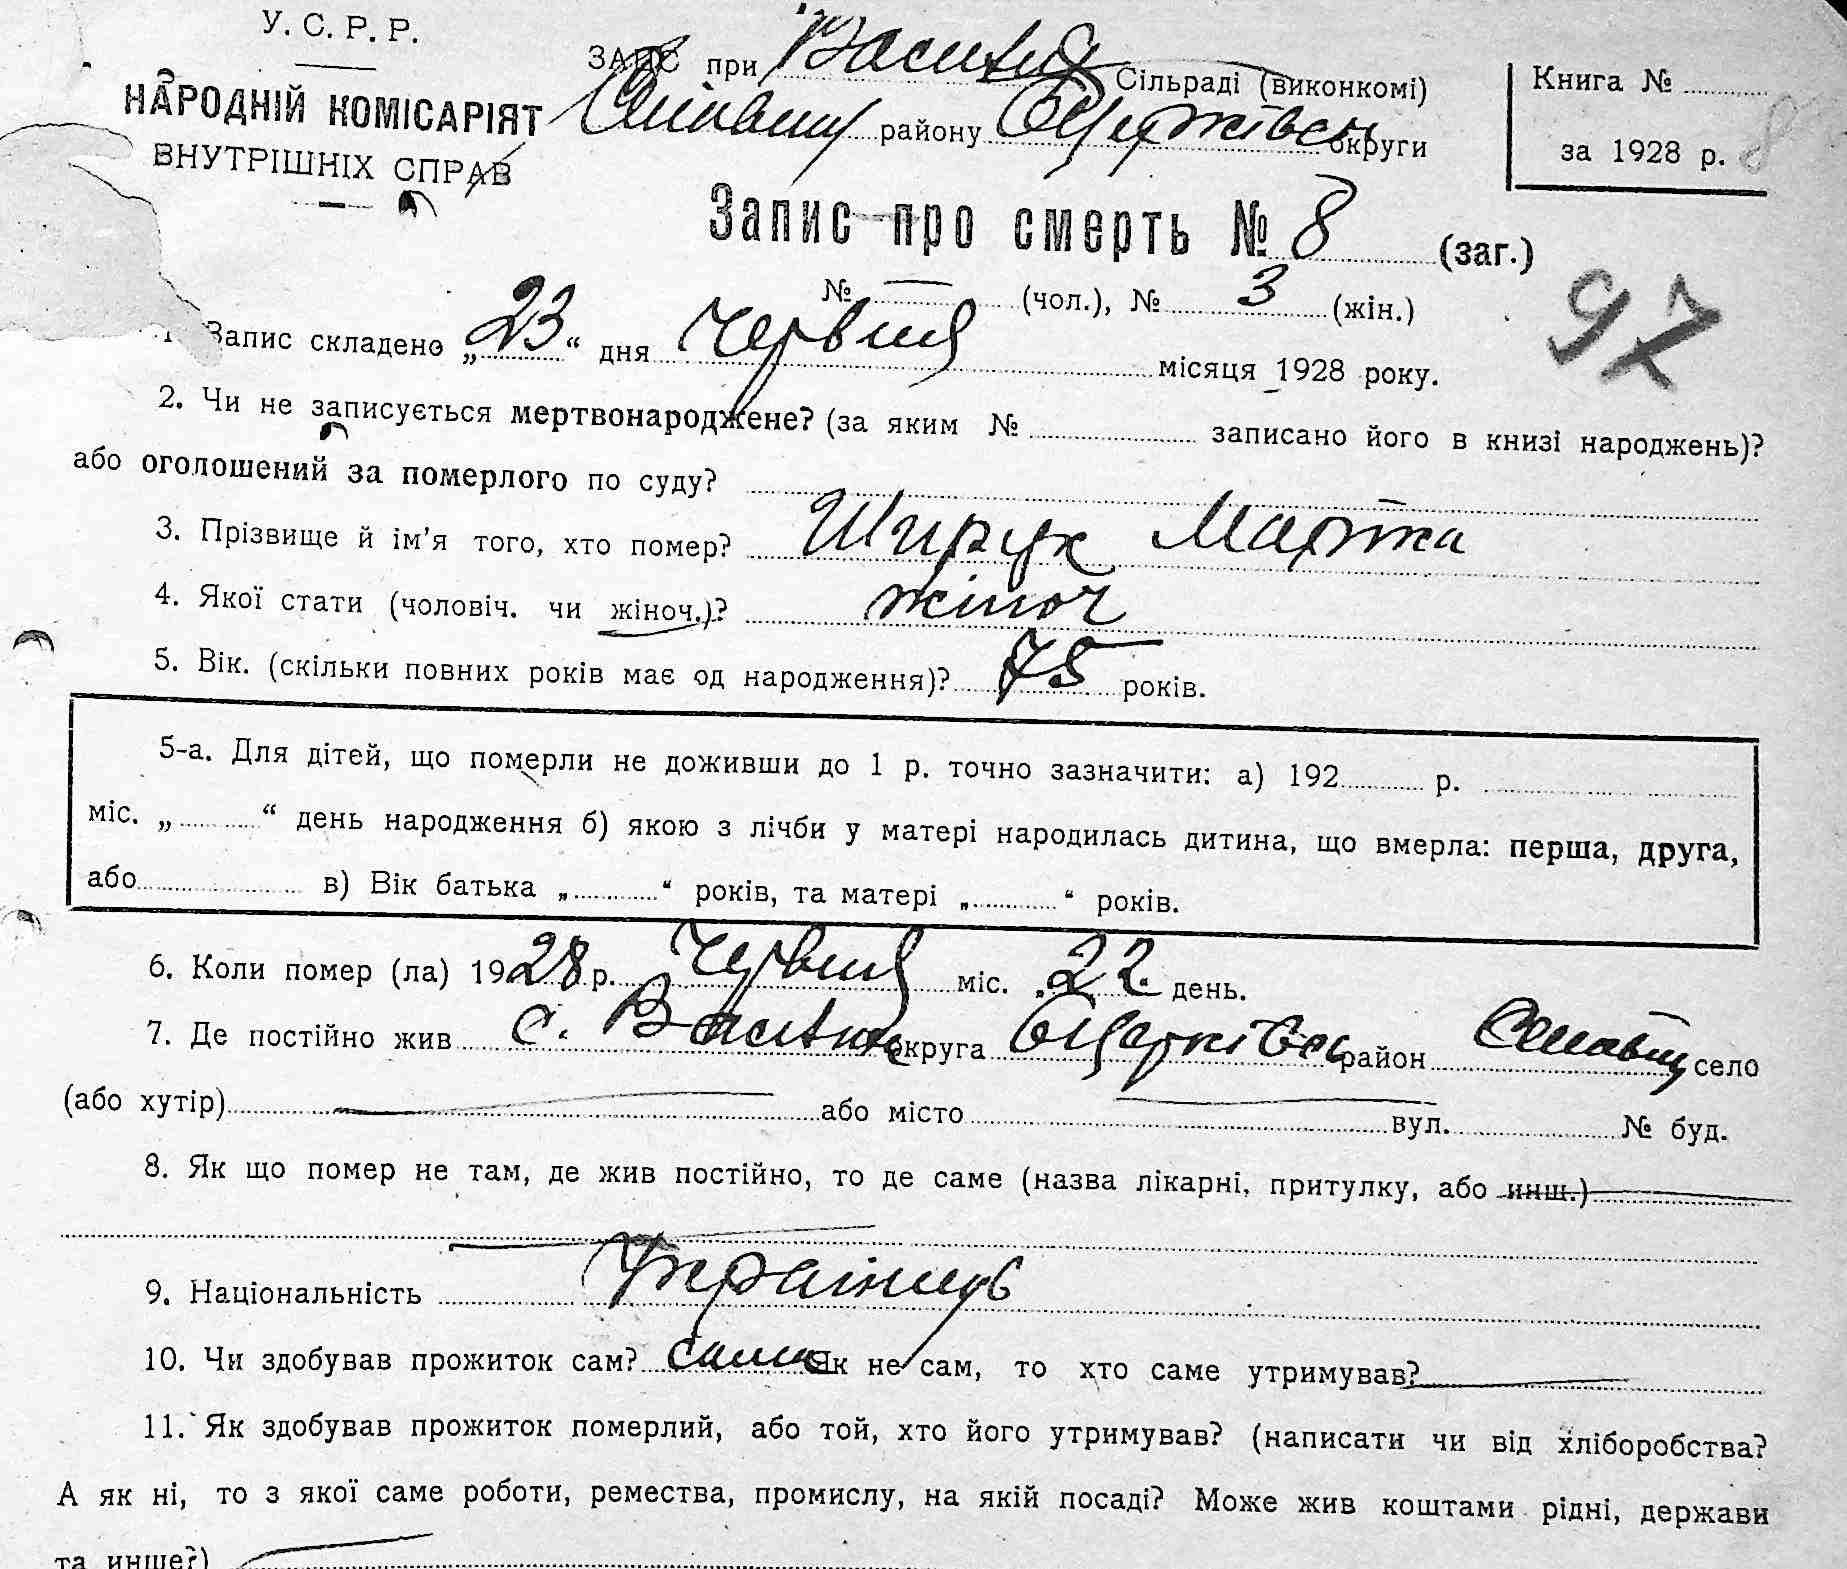 У. С. Р. Р.
НАРОДНІЙ КОМІСАРІЯТ
ВНУТРІШНІХ СПРАВ
ЗАПС при Сільраді (виконкомі)
району БЦерківськ округи
Книга №
за 1928 р. 8
Запис про смерть № 8 (заг.)
№ — (чол.), № 3 (жін.)
97
1. Запис складено „23“ дня Червня місяця 1928 року.
2. Чи не записується мертвонароджене? (за яким № записано його в книзі народжень)?
або оголошений за померлого по суду?
3. Прізвище й ім'я того, хто помер? Шпрук Марта
4. Якої стати (чоловіч. чи жіноч.)? жіноч
5. Вік. (скільки повних років має од народження)? 75 років.
5-а. Для дітей, що померли не доживши до 1 р. точно зазначити: а) 192 р.
міс. „ “ день народження б) якою з лічби у матері народилась дитина, що вмерла: перша, друга,
або в) Вік батька „ “ років, та матері „ “ років.
6. Коли помер (ла) 1928 р. Червня міс. „22. день.
7. Де постійно жив с. округа БЦерківськ район село
(або хутір) або місто вул. № буд.
8. Як що помер не там, де жив постійно, то де саме (назва лікарні, притулку, або инш.)
9. Національність Українць
10. Чи здобував прожиток сам? сама Як не сам, то хто саме утримував?
11. Як здобував прожиток померлий, або той, хто його утримував? (написати чи від хліборобства?
А як ні, то з якої саме роботи, ремества, промислу, на якій посаді? Може жив коштами рідні, держави
та инше?)